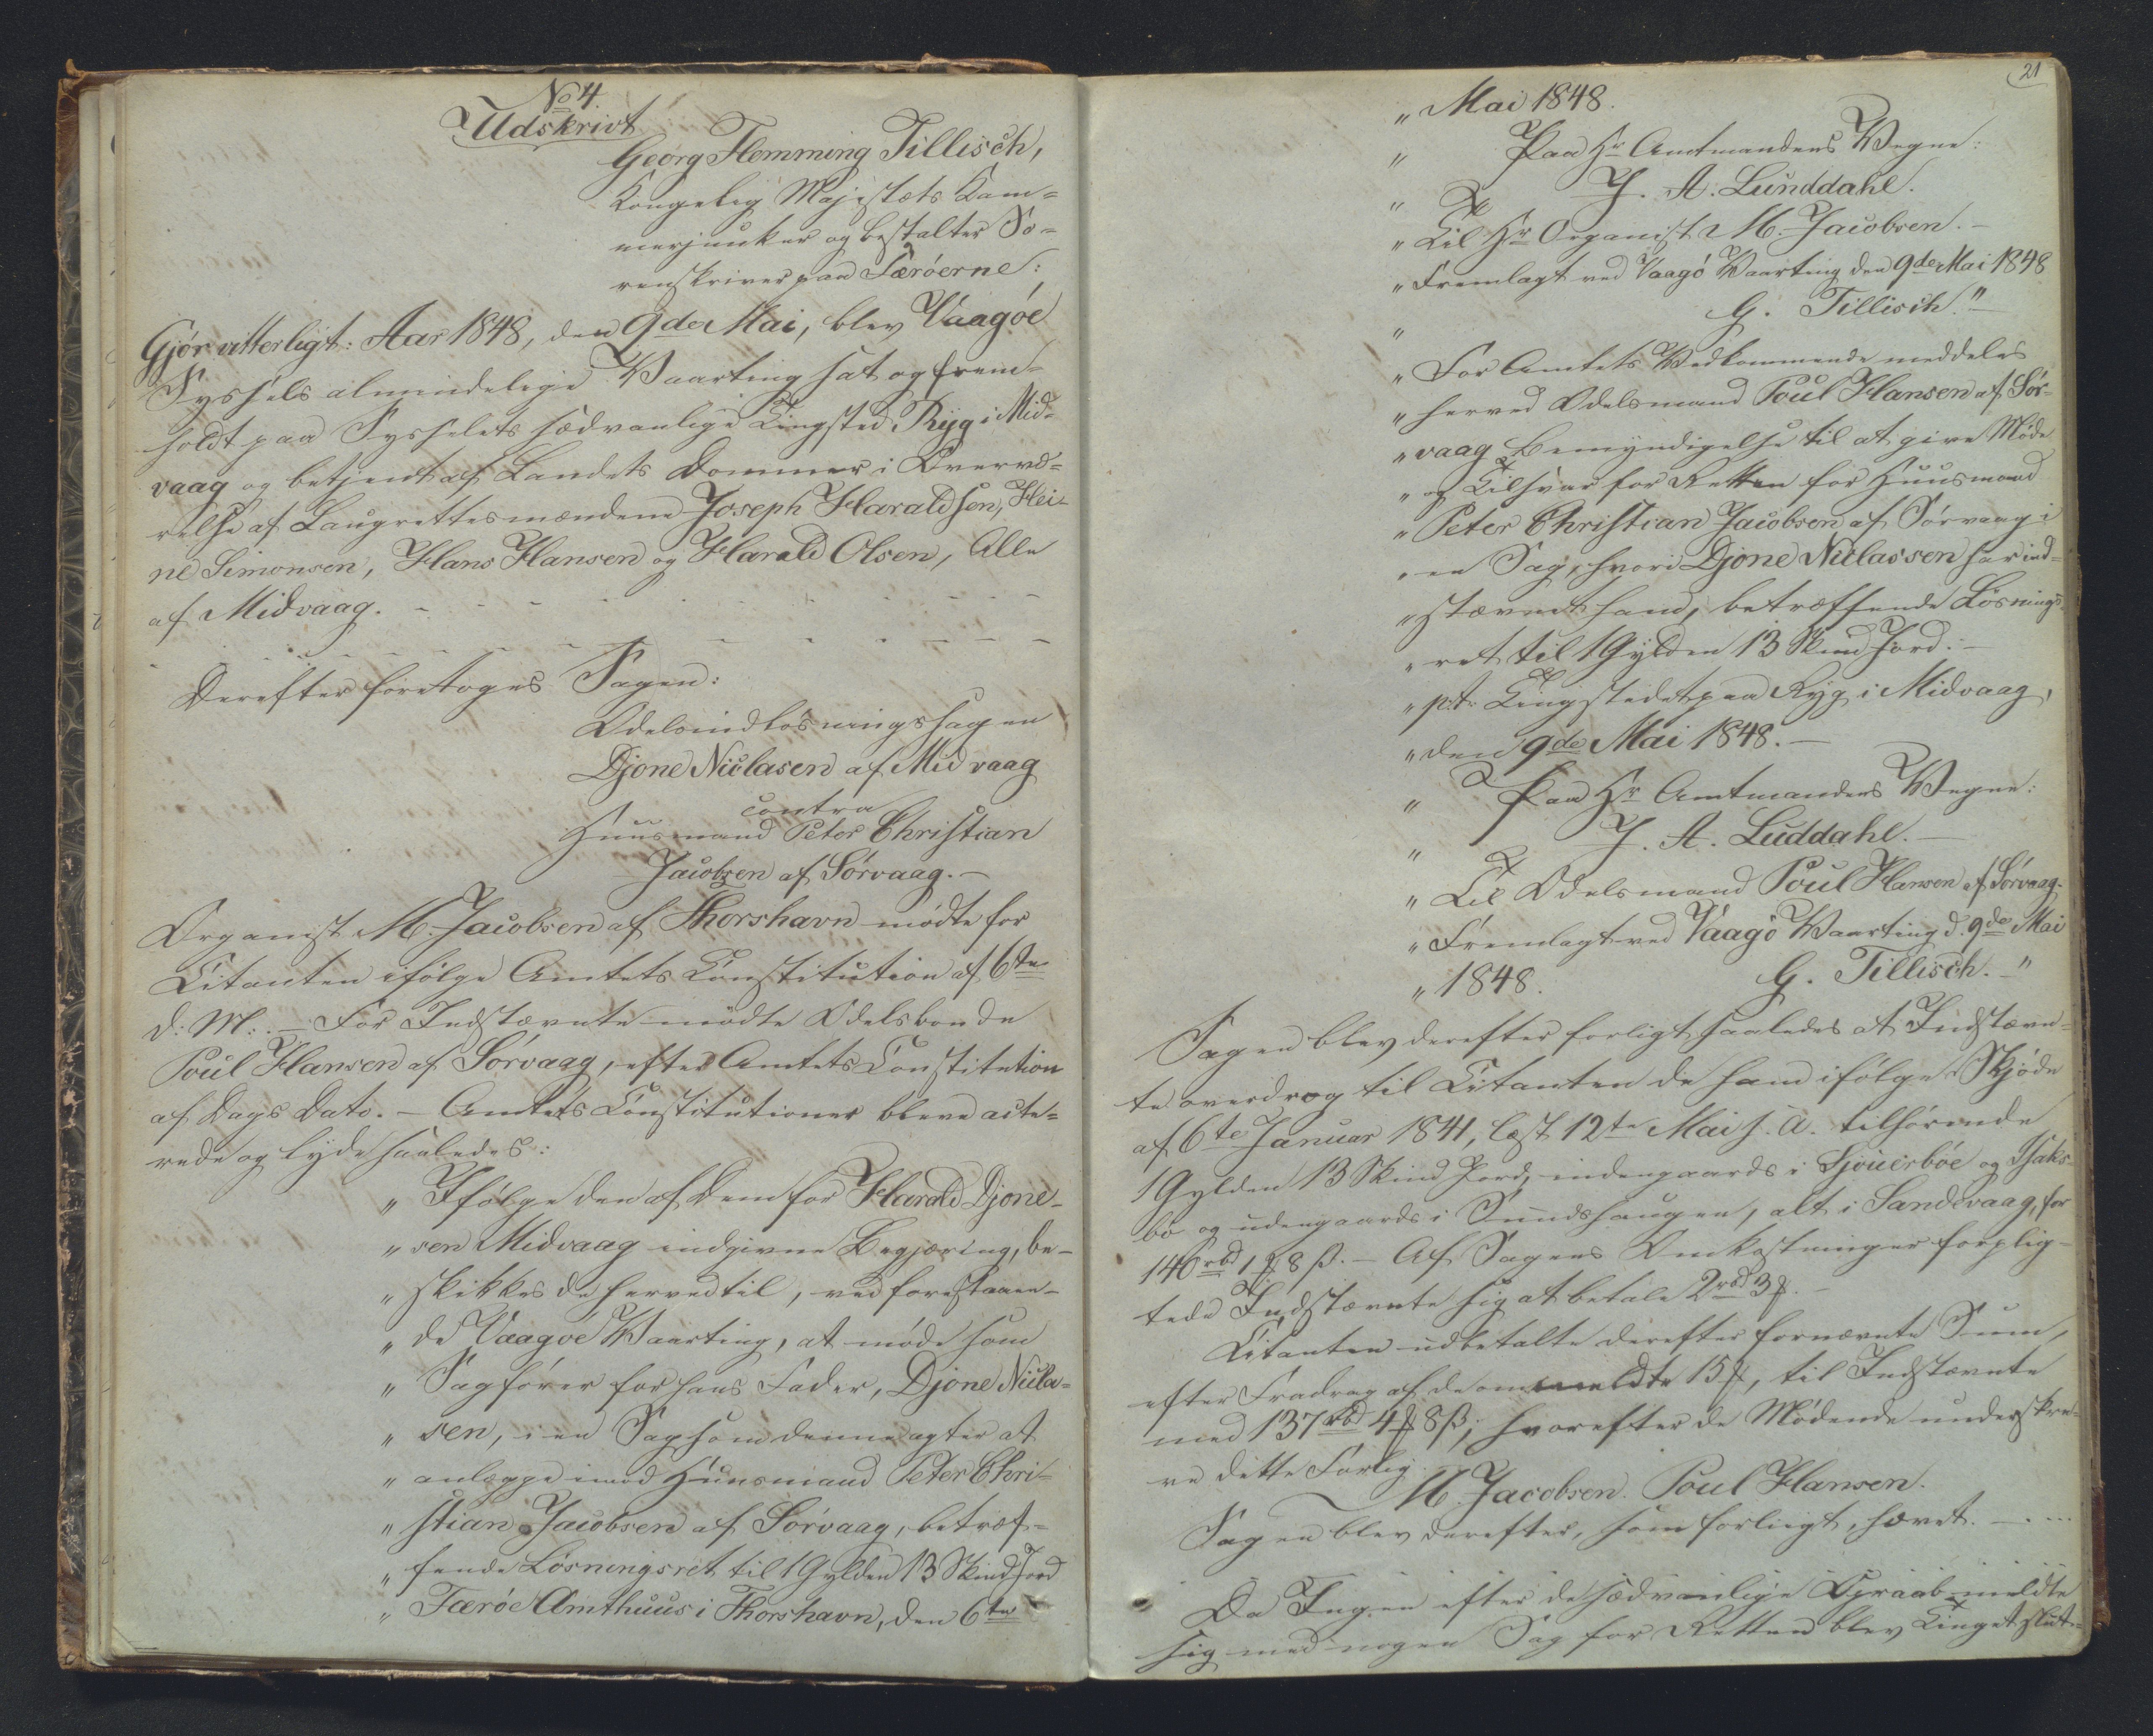 No 4.
Udskrivt
Georg Flemming Tillisch,
Kongelig Majestæts Kam=
merjunker og bestalter So=
renskriver paa Færöerne:
Gjör vitterligt: Aar 1848, den 9de Mai, blev Vaagöe
Syssels almindelige Vaarting sat og frem=
holdt paa Sysselets sædvanlige Tingsted Ryg i Mid=
vaag og betjent af Landets Dommer i Overvæ=
relse af Laugrettesmændene Joseph Haraldsen, Hei=
ne Simonsen, Hans Hansen og Harald Olsen, Alle
af Midvaag. - - - - - - - - - -
- - - - - - - - - - - - - -
Derefter foretoges Sagen:
Odelsindlösningssagen
Djone Niclasen af Midvaag
contra
Huusmand Peter Christian
Jacobsen af Sörvaag. -
Organist M. Jacobsen af Thorshavn mödte for
Citanten ifölge Amtets Constitution af 6te
d: M:. - For Indstævnte mödte Odelsbonde
Poul Hansen af Sörvaag, efter Amtets Constitution
af Dags Dato. - Amtets Constitutioner bleve acte=
rede og lyde saaledes:
" Ifölge den af Dem for Harald Djone-
" sen Midvaag indgivne Begjæring, be-
" skikkes De herved til, ved forestaaen-
" de Vaagöe Vaarting, at möde som
" Sagförer for hans Fader, Djone Nicla=
" sen, i en Sag som denne agter at
" anlægge imod Huusmand Peter Chri=
" stian Jacobsen af Sörvaag, betræf=
" fende Lösningsret til 1 Gylden 13 Skind Jord
" Færöe Amthuus i Thorshavn, den 6te
21
" Mai 1848.
" Paa Hr Amtmandens Vegne:
" J. A. Lunddahl.
" Til Hr Organist M. Jacobsen. -
" Fremlagt ved Vaagö Vaarting den 9de Mai 1848
" G. Tillisch." -
" For Amtets Vedkommende meddeles
" herved Odelsmand Poul Hansen af Sör-
" vaag Bemyndigelse til at give Möde
" og Tilsvar for Retten for Huusmand
" Peter Christian Jacobsen af Sörvaag i
" en Sag, hvori Djone Niclassen har ind=
" stævnet ham, betræffende Lösnings=
" ret til 1 Gylden 13 Skind Jord: -
" p.t. Tingstedet paa Ryg i Midvaag,
" den 9de Mai 1848. -
" Paa Hr Amtmandens Vegne:
" J. A. Luddahl. -
" Til Odelsmand Poul Hansen af Sörvaag.
" Fremlagt ved Vaagö Vaarting d. 9de Mai
" 1848. G. Tillisch. - "
Sagen blev derefter forligt saaledes at Indstævn=
te overdrog til Citanten de ham ifölge Skjöde
af 6te Januar 1841, læst 12te Mai s. A. tilhörende
1 Gylden 13 Skind Jord, indengaards i Sjouerböe og Isaks-
bö og udengaards i Sundshaugen, alt i Sandevaag, for
140 rbd 1 ℳ 8 ß. - Af Sagens Omkostninger forplig-
tede Indstævnte sig at betale 2 rbd 3 ℳ. -
Citanten udbetalte derefter fornævnte Sum,
efter Fradrag af de ommeldte 15 ℳ, til Indstævnte
med 137 rbd 4 ℳ 8 ß; hvorefter de Mödende underskre-
ve dette Forlig.
M. Jacobsen. Poul Hansen.
Sagen blev derefter, som forligt, hævet. - . ...
Da Ingen efter de sædvanlige Opraab meldte
sig med nogen Sag for Retten blev Tinget slut=